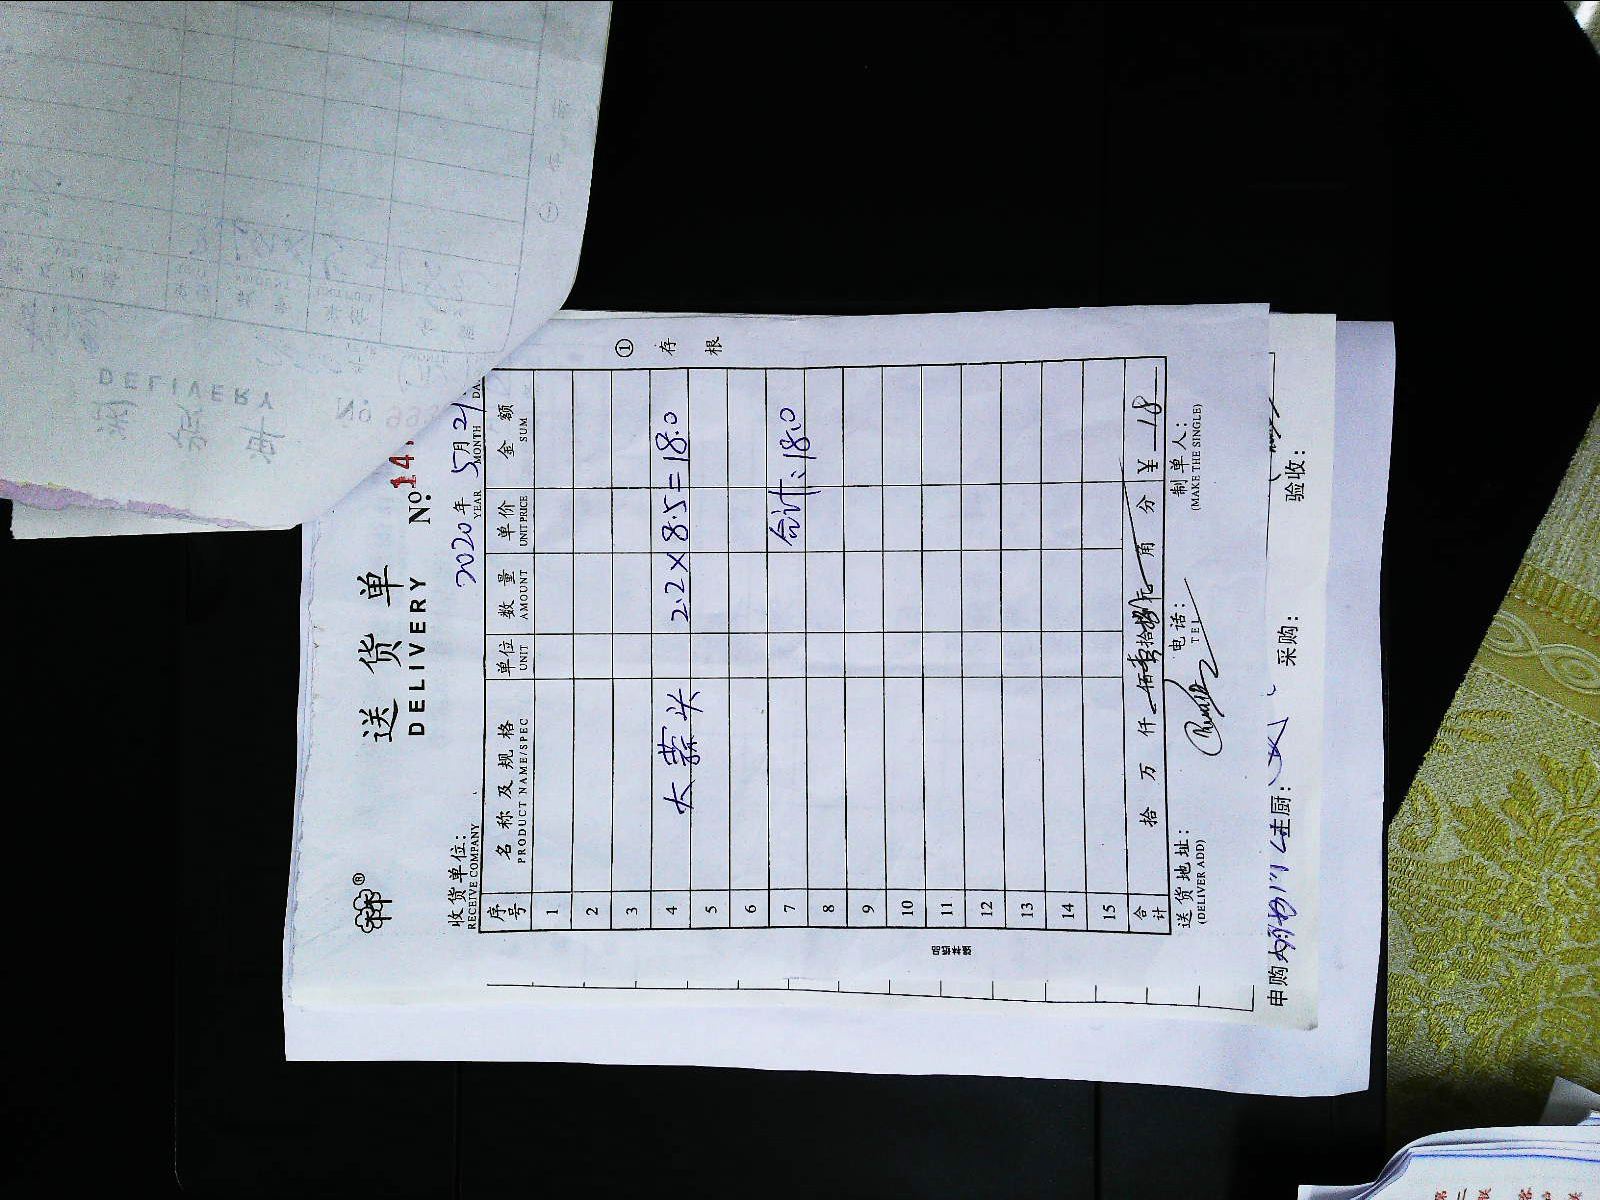 送货单
DELIVERY
No. 14
收货单位:
RECEIVE COMPANY
2020年 5月 21
YEAR MONTH DA
序号 名称及规格 单位 数量 单价 金额
PRODUCT NAME/SPEC UNIT AMOUNT UNIT PRICE SUM
1
2
3
4 大蒜头 2.2×8.5=18.0
5
6
7 合计:18.0
8
9
10
11
12
13
14
15
合计 拾 万 仟 佰 壹拾捌元 角 分 ¥ 18
送货地址: 电话: 制单人:
(DELIVER ADD) TEL (MAKE THE SINGLE)
① 存根
申购 主厨: 采购: 验收:
DELIVERY
No